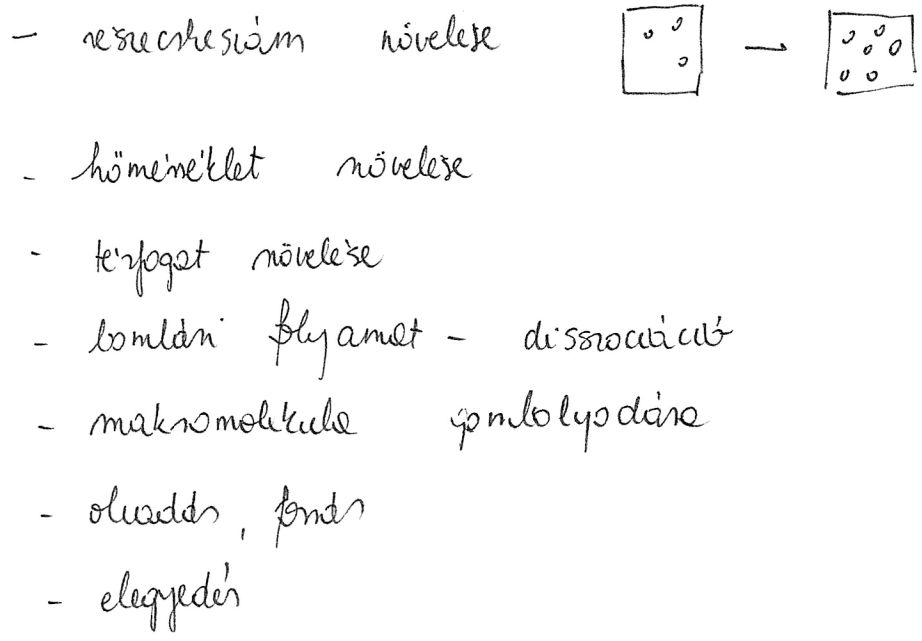 - részecskeszám növelése
- hőmérséklet növelése
- térfogat növelése
- bomlási folyamat - disszociáció
- makromolekula gombolyodása
- olvadás, forrás
- elegyedés